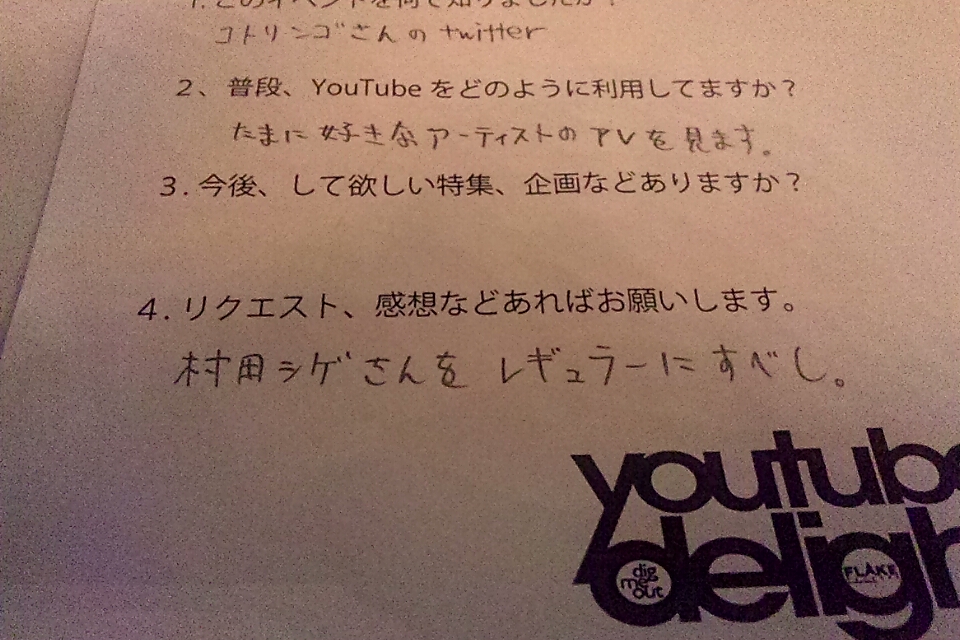 1. このイベントを何で知りましたか?
コトリンゴさんの twitter
2、普段、YouTube をどのように利用してますか?
たまに好きなアーティストの PVを見ます。
3. 今後、して欲しい特集、企画などありますか?
4. リクエスト、感想などあればお願いします。
村田シゲさんを レギュラーにすべし。
youtube
deligh
dig me out
FLAKE